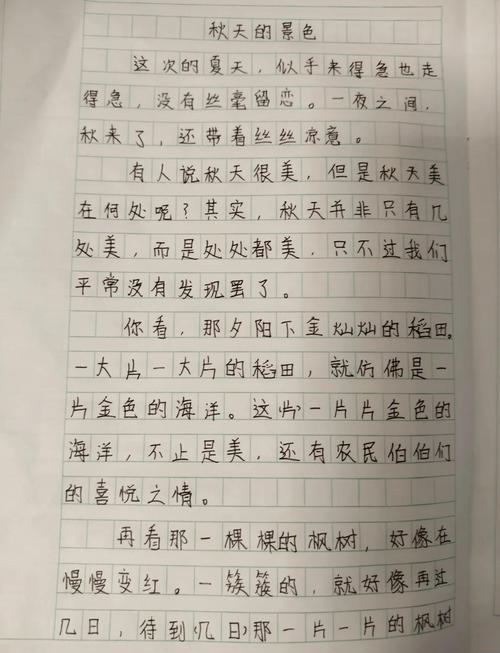 秋天的景色
这次的夏天，似乎来得急也走
得急，没有丝毫留恋。一夜之间，
秋来了，还带着丝丝凉意。
有人说秋天很美，但是秋天美
在何处呢？其实，秋天并非只有几
处美，而是处处都美，只不过我们
平常没有发现罢了。
你看，那夕阳下金灿灿的稻田。
一大片一大片的稻田，就仿佛是一
片金色的海洋。这(片)一片片金色的
海洋，不止是美，还有农民伯伯们
的喜悦之情。
再看那一棵棵的枫树，好像在
慢慢变红。一簇簇的，就好像再过
几日，待到(几日)那一片一片的枫树